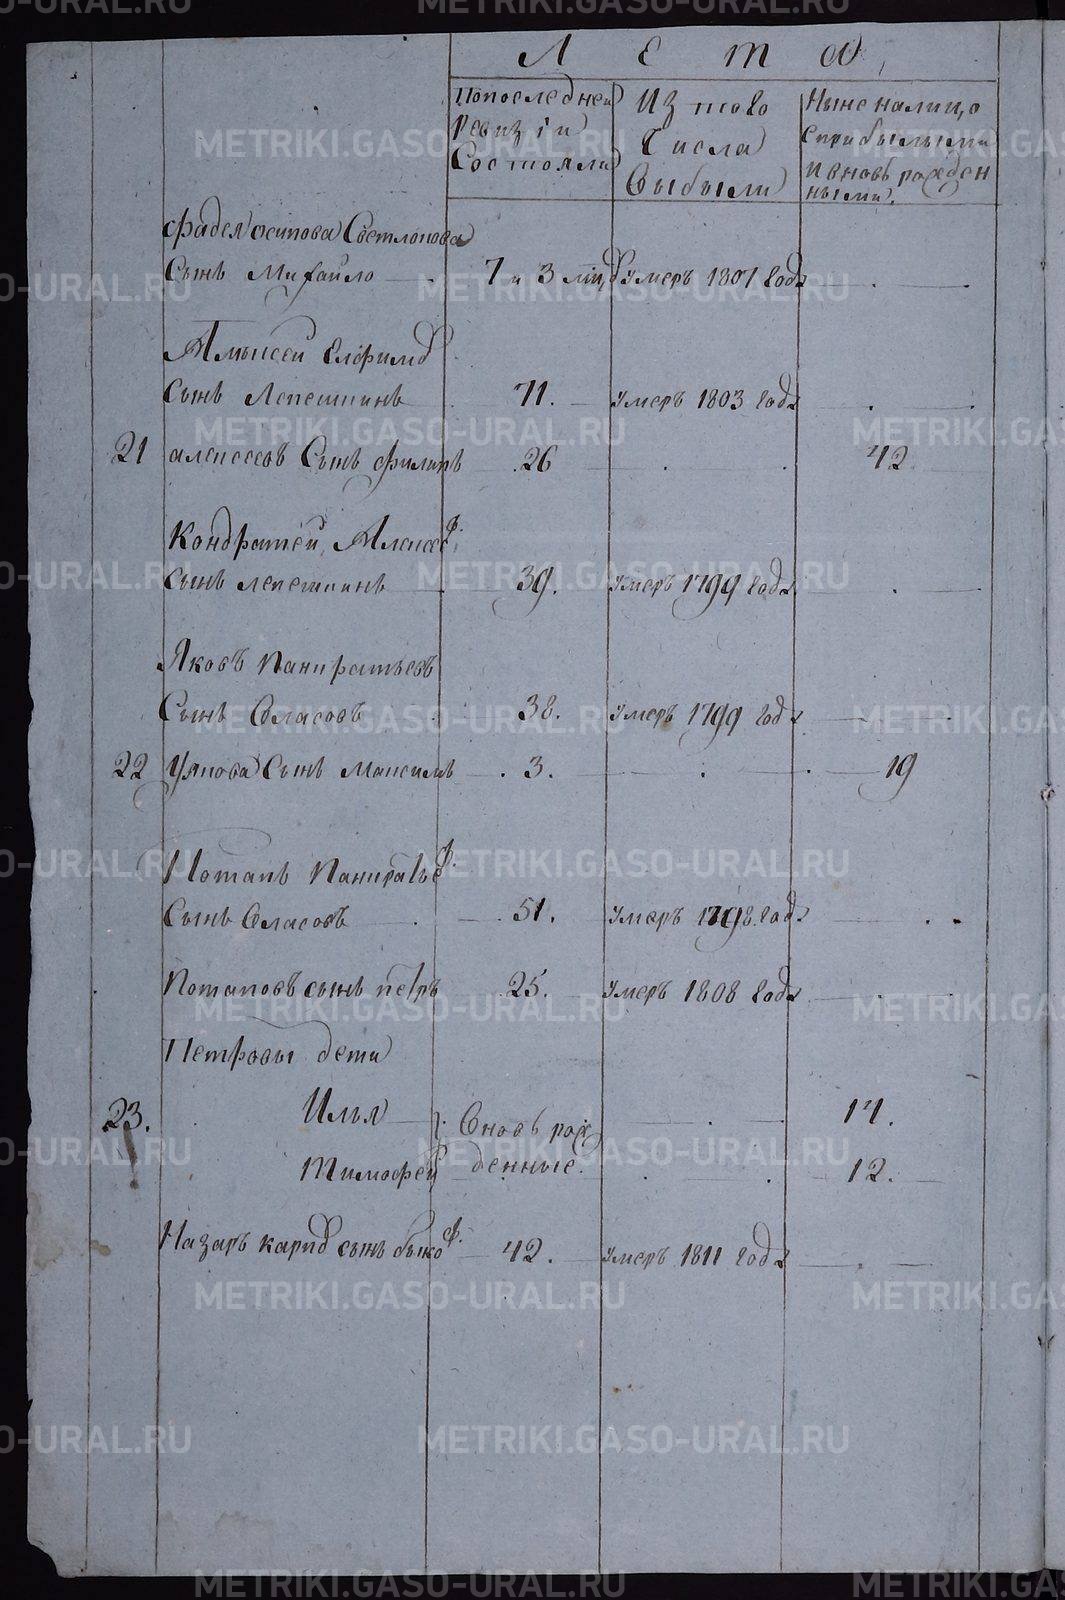 Лета
По последней ревизіи состояли
Из того числа выбыли
Ныне налицо с прибылыми и вновь рожденными.
Фадея осипова Светлокова
сынъ Михайло 7 и 3 умеръ 1807 года
Алѣксей елфимов
сынъ Лепешкинъ 71. умеръ 1803 года
21 алексеевъ Сынъ филипъ 26 42
Кондратей Алексеев.
сынъ лепешкинъ 39. умеръ 1799 года
Яковъ Панкратьевъ
Сынъ Власовъ 38. умеръ 1799 года
22 У якова Сынъ Максимъ 3. 19
Потапъ Панкратьев.
сынъ Власовъ 51. умеръ 1798. года
Потаповъ сынъ петръ 25. умеръ 1808 года
Петровы дети
23. Илья вновь рож 14.
Тимофей денные. 12.
Назаръ карпов сынъ быков. 42. умеръ 1811 года
METRIKI.GASO-URAL.RU